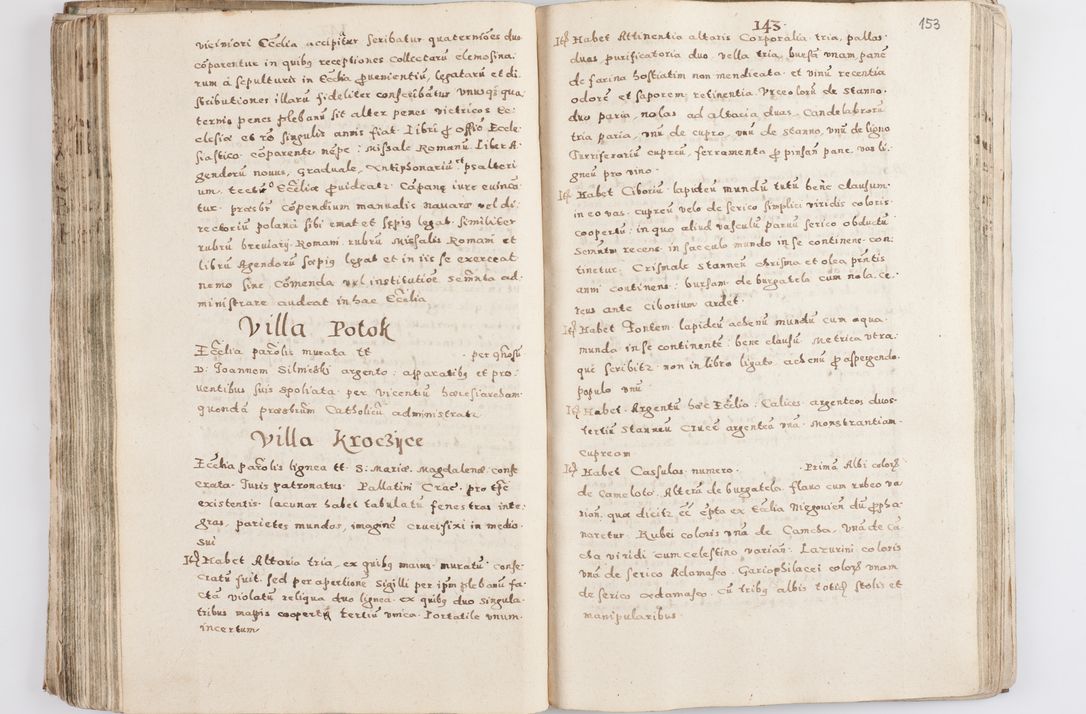 viciniori Eccłia accipitur scribatur quaterniões duo
cōparentur in quibꝫ receptiones collectarū elemosina-
rum à sepulturis in Eccłia provenientiū, legatarū et di-
stributiones illarū fideliter conscribātur unusqꝫ qua
ternio penes plebanū sit alter penes victricos Ec-
clesiæ et rō singulis annis fiat. Libri ꝓ offō Eccle-
siastico cōparentr nēpe: Missale Romanū Liber A-
gendorū novus, Graduale, Antiphonariū et psalteri
um. Tectū Eccłiæ ꝓvideatr Cāpanę iure evinca-
tur. præsbr cōpendium manualis navaro vel di-
rectoriū polanci sibi emat et sępiꝰ legat. similiter
rubrū breviarij Romani. rubrū Missalis Romani et
librū Agendorū sæpiꝰ legat et in iis se exerceat
nemo sine Cōmenda vel institutiōe Semnta ad-
ministrare audeat in hac Eccłia
Villa Potok
Eccłia parōlis murata tt · per gnosū
D: Joannem Silmicki argento: apparatibꝫ et pro-
ventibus suis spoliata per vicentiū hæresiarcham
quondā præsbrum Catholicū administratr
Villa Kroczÿce
Eccłia parōlis lignea tt S: Mariæ Magdalenæ conse
crata Juris patronatus Pallatini Crac. pro tp̄e
existentis. lacunar habet tabulatū fenestras inte-
gras, parietes mundos, imaginē crucifixi in medio
sui
Itē Habet Altaria tria, ex quibꝫ maius muratū conse-
cratū fuit. sed per apertionē sigilli per ipm plebanū fa-
ctā violatū reliqua duo lignea. ex quibꝫ duo singula-
tribus mappis cooperta tertiū unica. Portatile unum
incertum
143
153
Itē Habet Attinentia altaris Corporalia tria, pallas
duas purificatoria duo vella tria, bursā unam, panē
de farina hostiatim non mendicata et vinū recentia
odorē et saporem retinentia. Urceolorū de stanno
duo paria, nolas ad altaria duas, Candelabrorū
tria paria, unū de cupro, unū de stanno, unū de ligno
Turriferariū cupreū, ferramenta ꝓ pinsan pane, vas li-
gneū pro vino
Itē Habet Ciboriū lapideū mundū tutū bene clausum
in eo vas cupreū velo de serico simplici viridis coloris
coopertū: in quo aliud vasculū parvū serico obductū
Semntm recens in sacculo mundo in se continens con-
tinetur. Crismale stanneū chrisma et olea pnt̄is
anni continens: bursam de burgatela cum nola. Ce-
reus ante ciborium ardet
Itē Habet Fontem lapideū achenū mundū cum aqua
munda in se continentē: bene clausū Metrica utra-
que scribitr non in libro ligato achenū ꝓ aspergendo
populo unū
Itē Habet Argentū hæc Eccłia: Calices argenteos duos
tertiū stanneū Crucē argenteā unā. Monstrantiam
cupream
Itē Habet Cassulas numero · Primā Albi colorꝫ
de Cameloto. Alterā de burgatela flavo cum rubeo va
rian. quæ dicitr ēē ēpta ex Eccłia Niegowien dū ꝓpha-
naretur. Rubei coloris unā de Camcha, Unā de Cā
cha viridi cum celestino varian. Lazurini coloris
unā de serico Adamasco. Gariophilacei colorꝫ unam
de serico adamasco. cū tribꝫ albis totidē stolis et
manipularibus